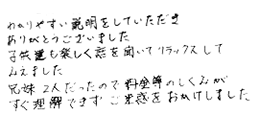 わかりやすい説明をしていただき
ありがとうございました
子供達も楽しく話を聞いてリラックスして
みえました
兄妹2人だったので料金等のしくみが
すぐ理解できず ご迷惑をおかけしました